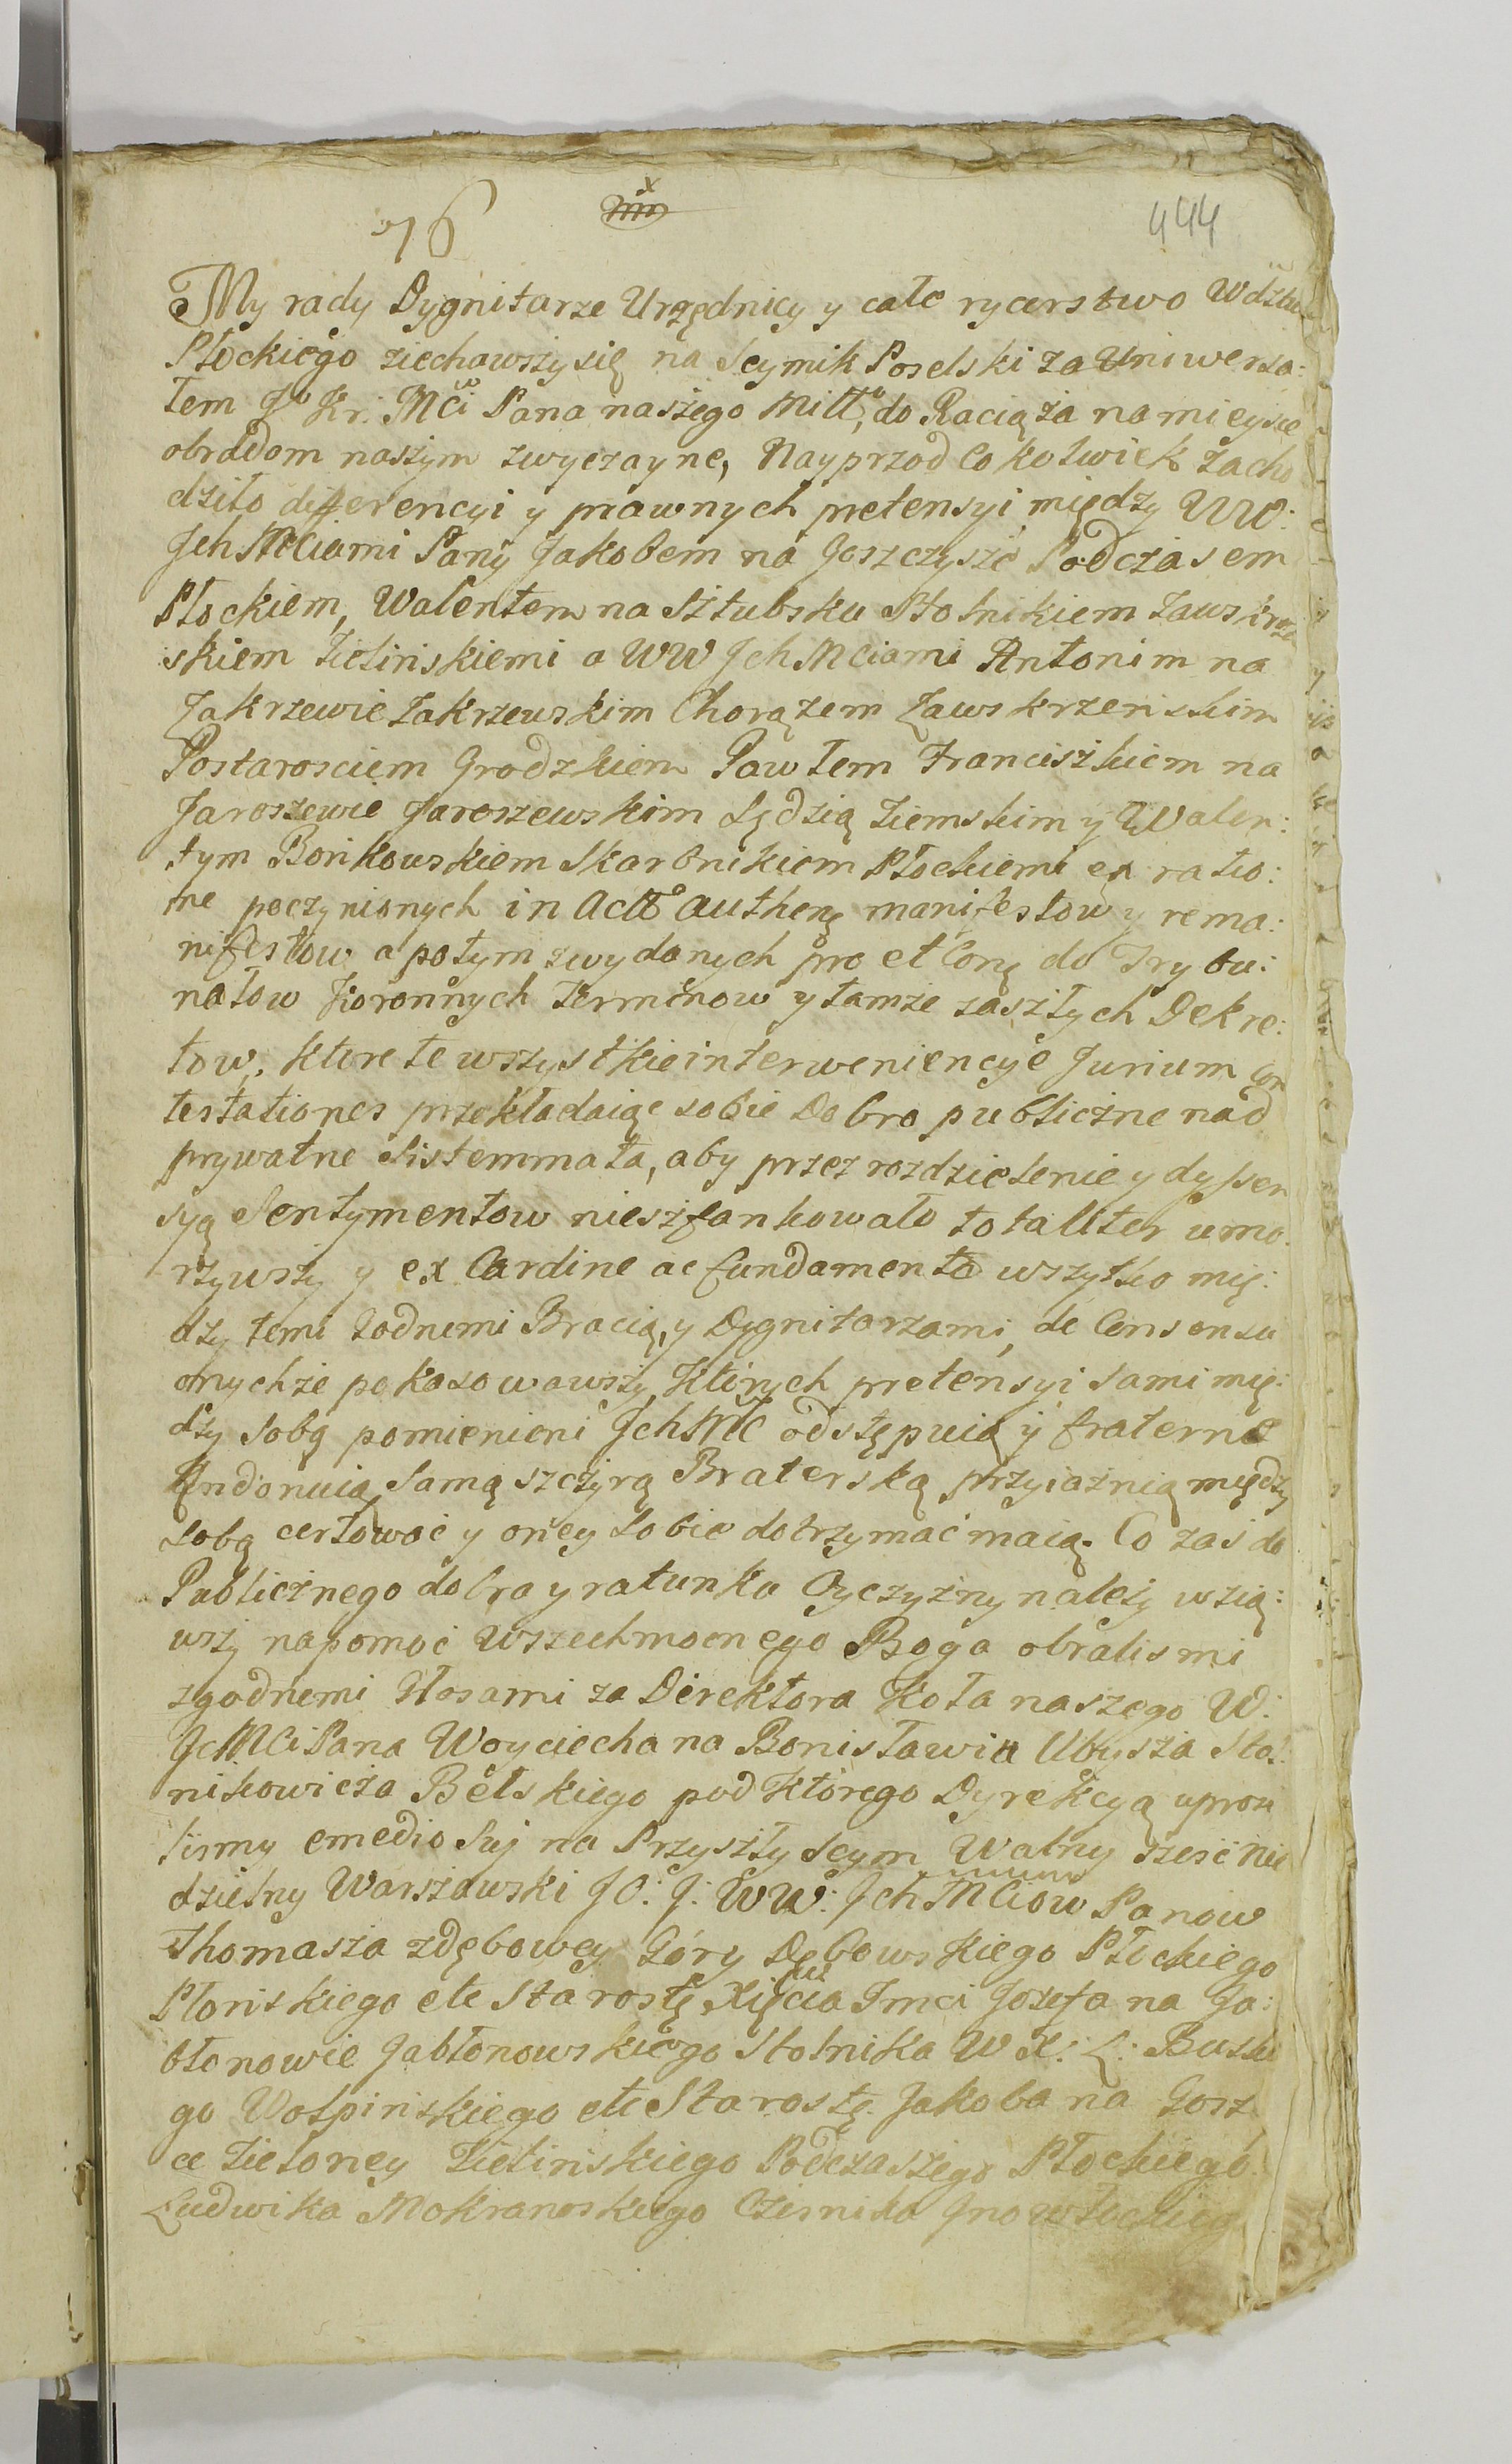 76
444
My rady Dygnitarze Urzędnicy y całe rycerstwo Wdztwa
Płockiego ziechawszy się na Seymik Poselski za Uniwersa:
łem Jo Kr: Mći Pana naszego Mittº, do Raciąża na mieysce
obradom naszym zwyczayne, Nayprzod Cokolwiek zacho
dziło differencyi y prawnych pretensyi między WW:
JchMciami Pany Jakobem na Goszczyźé Podczasem
Płockiem, Walentem na Słubsku Stolnikiem Zawskrzeń
skiem Zielińskiemi a WW JchMciami Antonim na
Zakrzewie Zakrzewskim Chorążem Zawskrzeńskim
Postarosciem Grodzkiem Pawłem Franciszkiem na
Jaroszewie Jaroszewskim Sędzią Ziemskim y Walen:
tym Bońkowskiem Skarbnikiem Płockiemi ex ratio:
ne poczynionych in Actº Authenę manifestow y rema:
nifestow a potym zwydanych pro et Conę do Trybu:
nałow Koronnych Terminow y tamże zaszłych Dekre:
tow, ktore te wszystkie interweniencye Jurium con
testationes przekładaiąc sobie Dobro publiczne nad
prywatne Sistemmata, aby przez rozdzielenie y dyssen
syą Sentymentow nieszfankowało totaliter umo:
rzywszy y ex Cardine ac fundamento wszytko mię:
dzy temi Godnemi Bracią, y Dygnitarzami, de Consensu
onychże pokasowawszy, których pretensyi sami mię:
dzy sobą pomienieni JchMć odstępuią y fraterne
kondonuią, Samą szczyrą Braterską przyiaźnią między
sobą certować y oney sobie dotrzymać maią. Co zaś do
Publicznego dobra y ratunku Oyczyzny należy wzią:
wszy na pomoć Wszechmocnego Boga obralismi
zgodnemi Głosami za Direktora Koła naszego W:
JcMCi Pana Woyciecha na Bonisławiu Ubysza Sto:
nikowicza Bełskiego pod którego Dyrekcyą uprosi
lismy emedio Suj na Przyszły Seym Walny sześć Nie
dzielny Warszawski JO: J: WW: JchMCiow Panow
Thomasza zdębowey Góry Dębowskiego Płockiego
Płońskiego etc Starostę Xięcia Jmci Jozefa na Ja:
błonowie Jabłonowskiego Stolnika W X: L: Buskie
go Wołpińskiego etc Starostę. Jakoba na Gosz
ce Zieloney Zielińskiego Podczaszego Płockiego
Ludwika Mokranoskiego Cześnika Jnowłockieg